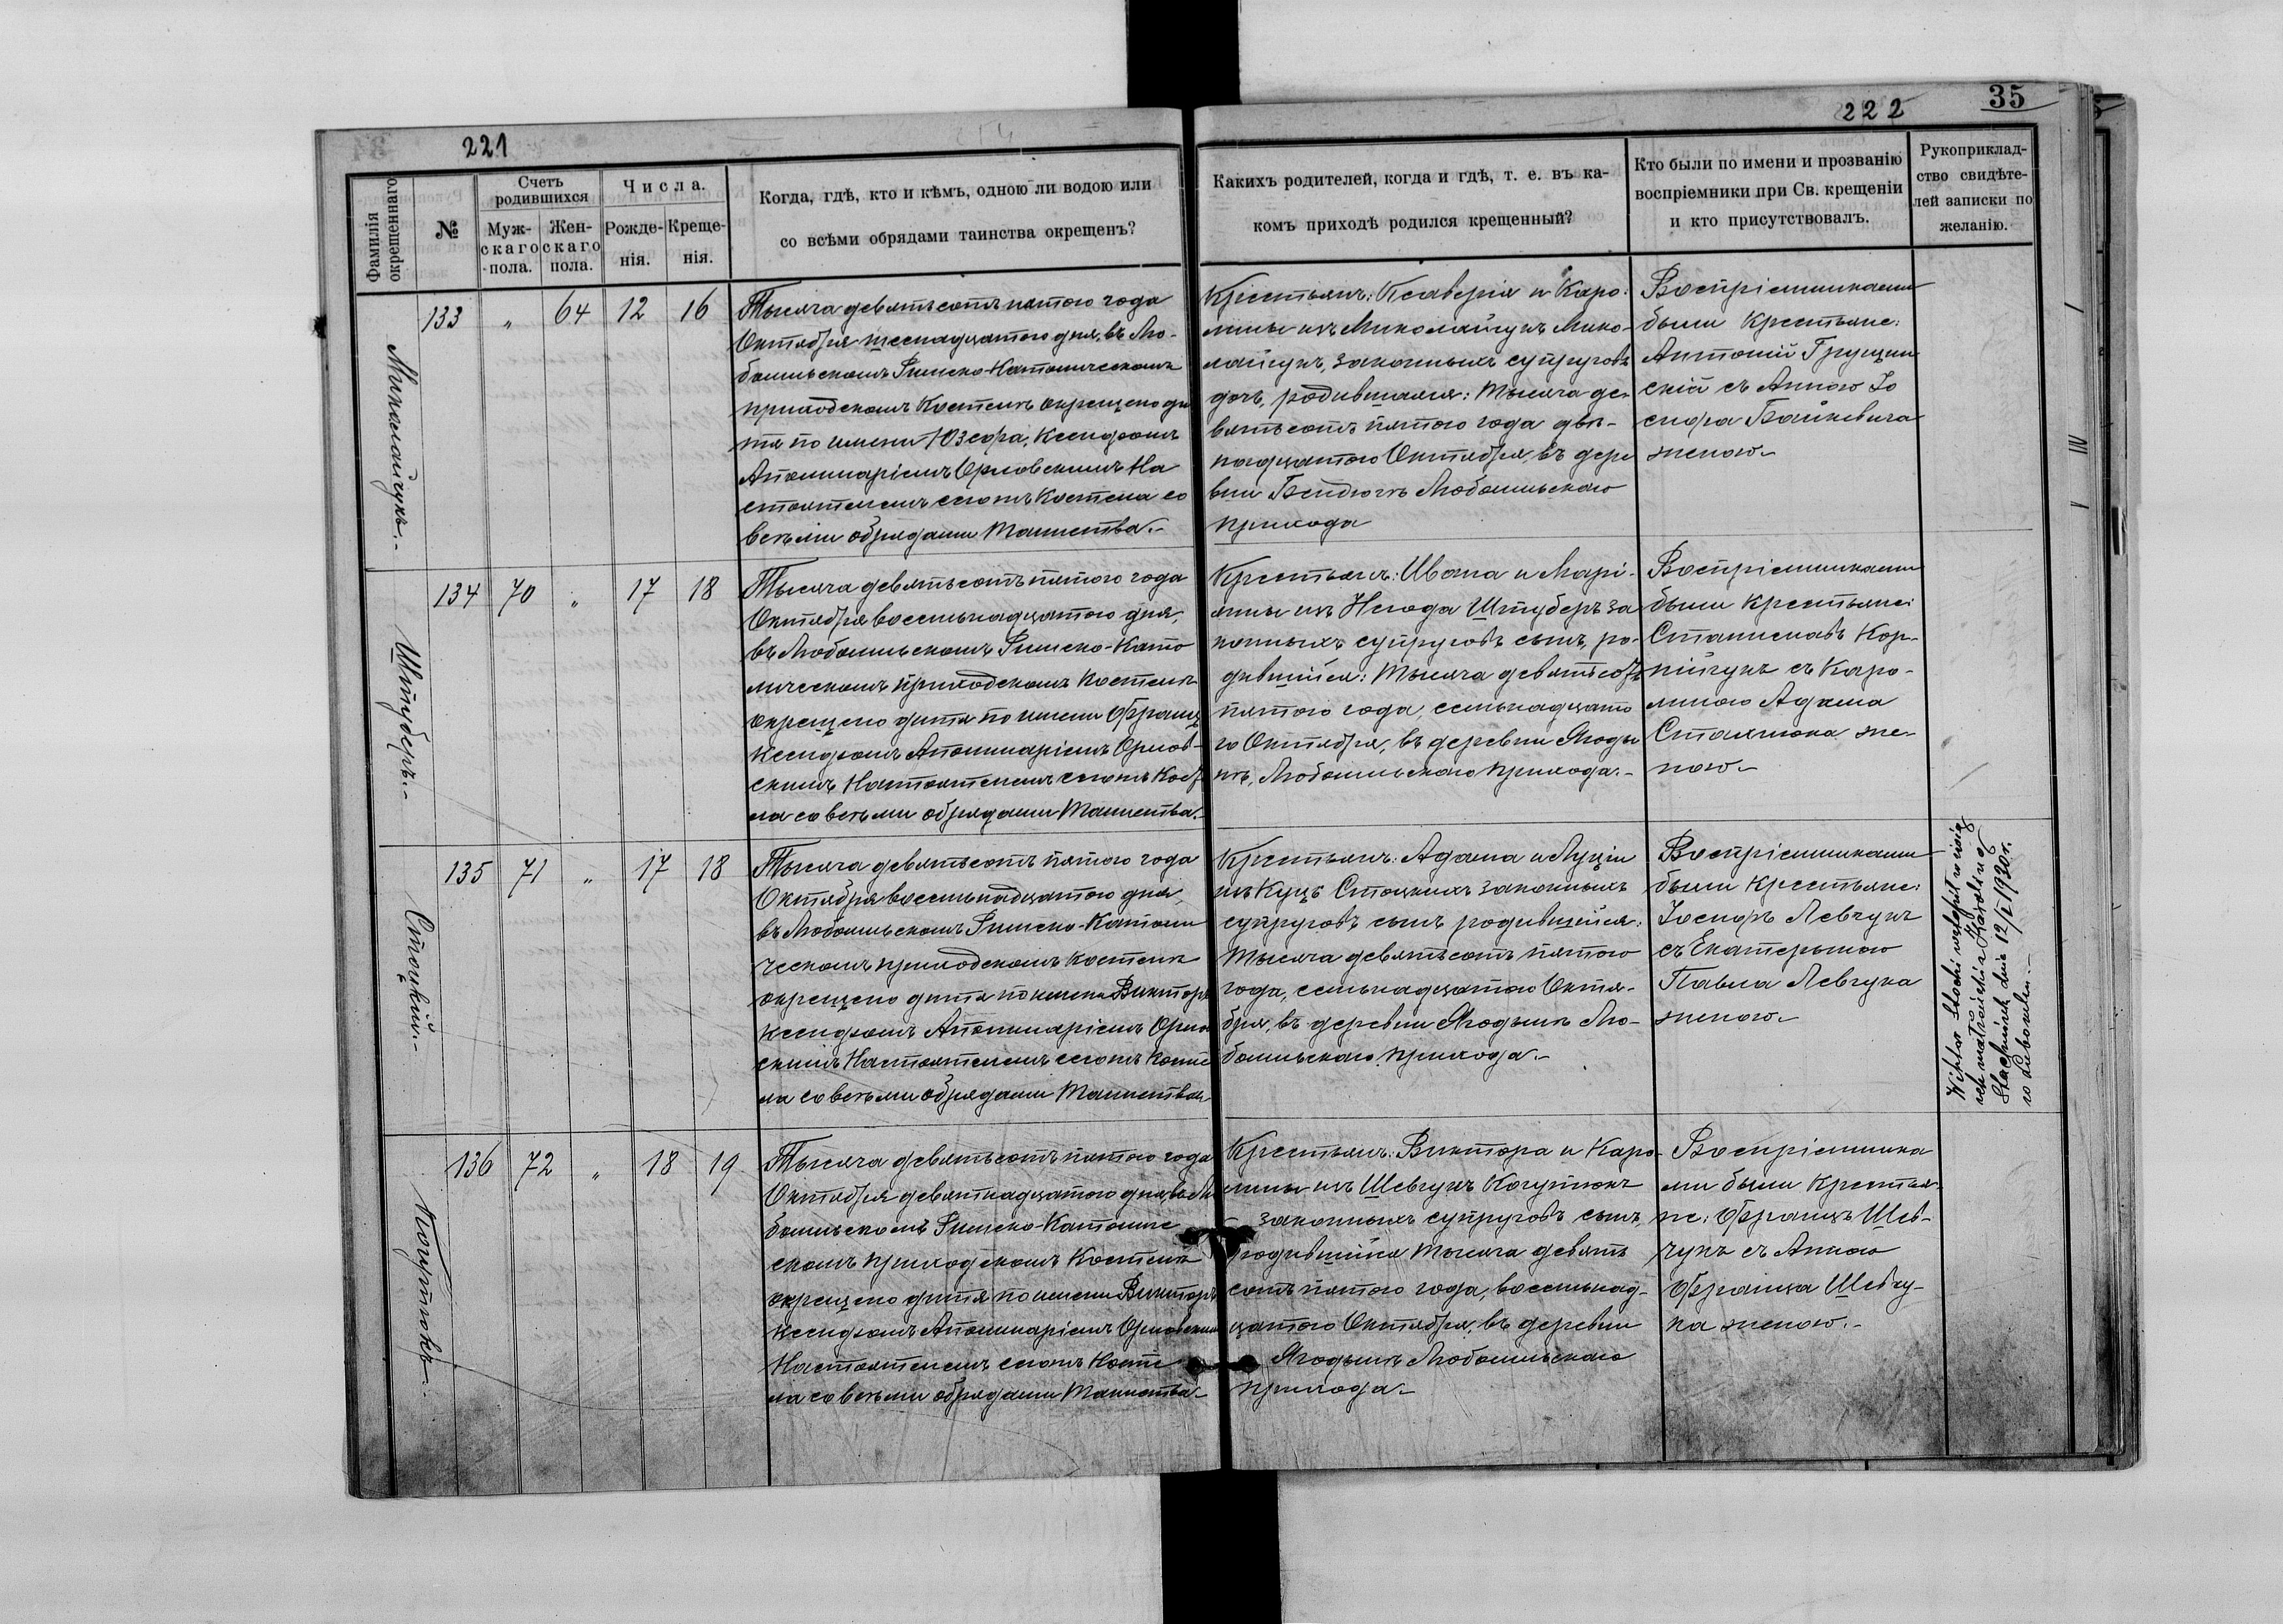 221
Фамилія окрещеннаго
№
Счетъ родившихся
Муж-
скаго
пола.
Жен-
скаго
пола.
Числа.
Рожде-
нія.
Креще-
нія.
Когда, гдѣ, кто и кѣмъ, одною ли водою или
со всѣми обрядами таинства окрещенъ?
222
35
Какихъ родителей, когда и гдѣ, т. е. въ ка-
комъ приходѣ родился крещенный?
Кто были по имени и прозванію
воспріемники при Св. крещеніи
и кто присутствовалъ.
Рукоприклад-
ство свидѣте-
лей записки по
желанію.
Миколайчукъ.-
133 " 64 12 16
Тысяча девятьсотъ пятого года
Октября шеснадцатого дня, въ Лю-
бомльскомъ Римско-Католическомъ
приходскомъ Костелѣ окрещено ди
тя по имени Юзефа, Ксендзомъ
Аполинаріемъ Орловскимъ На
стоятелемъ сегожъ Костела со
всѣми обрядами Таинства.-
Крестьянъ: Ксаверія и Каро-
лины изъ Миколайчукъ Мико-
лайчукъ, законныхъ супруговъ
дочь, родившаяся: Тысяча де-
вятьсотъ пятого года двѣ-
надцатого Октября, въ дере
вни Бендюгѣ Любомльскаго
прихода
Воспріемниками
были Крестьяне:
Антоній Грущин
скій съ Анною Іо
сифа Байкевича
женою.-
Штуберъ.-
134 70 " 17 18
Тысяча девятьсотъ пятого года
Октября восемьнадцатого дня,
въ Любомльскомъ Римско-Като
лическомъ приходскомъ Костелѣ
окрещено дитя по имени Францъ
Ксендзомъ Аполинаріемъ Орлов-
скимъ Настоятелемъ сегожъ Косте
ла со всѣми обрядами Таинства.-
Крестьянъ: Ивана и Марі-
янны изъ Штуберъ за
конныхъ супруговъ сынъ, ро-
дившійся: Тысяча девятьсотъ
пятого года, семьнадцато
го Октября, въ деревни Ягоды
нѣ, Любомльскаго прихода.-
Воспріемниками
были Крестьяне:
Станиславъ Кор-
пійчукъ съ Каро-
линою Адама
же-
ною.-
Стоцкій.-
135 71 " 17 18
Тысяча девятьсотъ пятого года
Октября восемьнадцатого дня,
въ Любомльскомъ Римско-Католи
ческомъ приходскомъ Костелѣ
окрещено дитя по имени Викторъ
Ксендзомъ Аполинаріемъ Орлов
скимъ Настоятелемъ сегожъ Косте
ла со всѣми обрядами Таинства.-
Крестьянъ: Адама и Луціи
изъ Куцъ Стоцкихъ законныхъ
супруговъ сынъ родившійся:
Тысяча девятьсотъ пятого
года, семьнадцатого Октя-
бря, въ деревни Ягодынѣ Лю-
бомльскаго прихода.-
Воспріемниками
были Крестьяне:
Іосифъ Левчукъ
съ Екатерыною
Павла Левчука
женою.-
Wiktor Stocki wstąpił w zwią
zek małżeński z Karoliną
dnia 12/I 1930 r.
w Lubomlu.-
Когутюкъ.
136 72 " 18 19
Тысяча девятьсотъ пятого года
Октября девятнадцатого дня, въ Лю
бомльскомъ Римско-Католиче
скомъ приходскомъ Костелѣ
окрещено дитя по имени Викторъ
Ксендзомъ Аполинаріемъ Орловскимъ
Настоятелемъ сегожъ Косте
ла со всѣми обрядами Таинства.-
Крестьянъ: Виктора и Каро-
лины изъ Шевчукъ Когутюкъ
законныхъ супруговъ сынъ,
родившійся Тысяча девять
сотъ пятого года, восемьнад-
цатого Октября, въ деревни
Ягодынѣ Любомльскаго
прихода.-
Воспріемника
ми были Крестья-
не: Францъ Шев-
чукъ съ Анною
Франца Шевчу-
ка женою.-